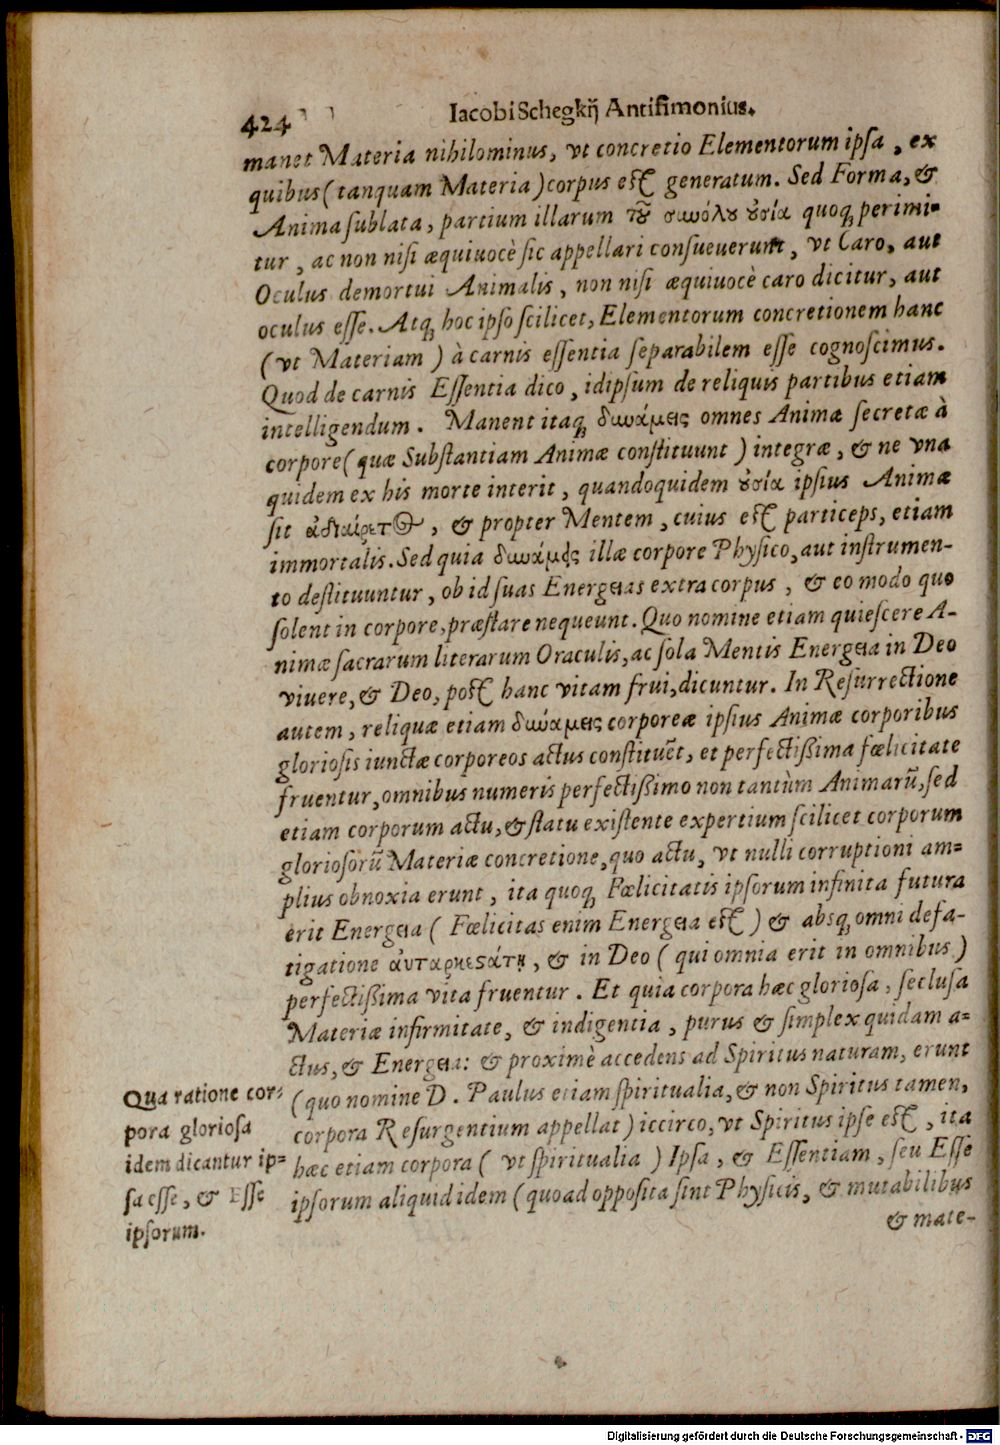 424
Iacobi Schegkij Antisimonius.
manet Materia nihilominus, vt concretio Elementorum ipsa, ex
quibus (tanquam Materia) corpus est generatum. Sed Forma, &
Anima sublata, partium illarum τοῦ συνόλου οὐσία quoq; perimi-
tur, ac non nisi æquiuocè sic appellari consueuerunt, vt Caro, aut
Oculus demortui Animalis, non nisi æquiuocè caro dicitur, aut
oculus esse. Atq; hoc ipso scilicet, Elementorum concretionem hanc
(vt Materiam) à carnis essentia separabilem esse cognoscimus.
Quod de carnis Essentia dico, idipsum de reliquis partibus etiam
intelligendum. Manent itaq; δυνάμεις omnes Animæ secretæ à
corpore (quæ Substantiam Animæ constituunt) integræ, & ne vna
quidem ex his morte interit, quandoquidem οὐσία ipsius Animæ
sit ἀδιαίρετος, & propter Mentem, cuius est particeps, etiam
immortalis. Sed quia δυνάμεις illæ corpore Physico, aut instrumen-
to destituuntur, ob id suas Energeias extra corpus, & eo modo quo
solent in corpore, præstare nequeunt. Quo nomine etiam quiescere A-
nimæ sacrarum literarum Oraculis, ac sola Mentis Energeia in Deo
viuere, & Deo, post hanc vitam frui, dicuntur. In Resurrectione
autem, reliquæ etiam δυνάμεις corporeæ ipsius Animæ corporibus
gloriosis iunctæ corporeos actus constituēt, et perfectißima fœlicitate
fruentur, omnibus numeris perfectißimo non tantùm Animarū, sed
etiam corporum actu, & statu existente expertium scilicet corporum
gloriosorū Materiæ concretione, quo actu, vt nulli corruptioni am-
plius obnoxia erunt, ita quoq; Fœlicitatis ipsorum infinita futura
erit Energeia (Fœlicitas enim Energeia est) & absq; omni defa-
tigatione αὐταρκεστάτη, & in Deo (qui omnia erit in omnibus)
perfectißima vita fruentur. Et quia corpora hæc gloriosa, seclusa
Materiæ infirmitate, & indigentia, purus & simplex quidam a-
ctus, & Energeia: & proximè accedens ad Spiritus naturam, erunt
(quo nomine D. Paulus etiam spiritualia, & non Spiritus tamen,
corpora Resurgentium appellat) iccirco, vt Spiritus ipse est, ita
hæc etiam corpora (vt spiritualia) Ipsa, & Essentiam, seu Esse
ipsorum aliquid idem (quoad opposita sint Physicis, & mutabilibus
& mate-
Qua ratione cor-
pora gloriosa
idem dicantur ip-
sa esse, & Esse
ipsorum.
Digitalisierung gefördert durch die Deutsche Forschungsgemeinschaft - DFG